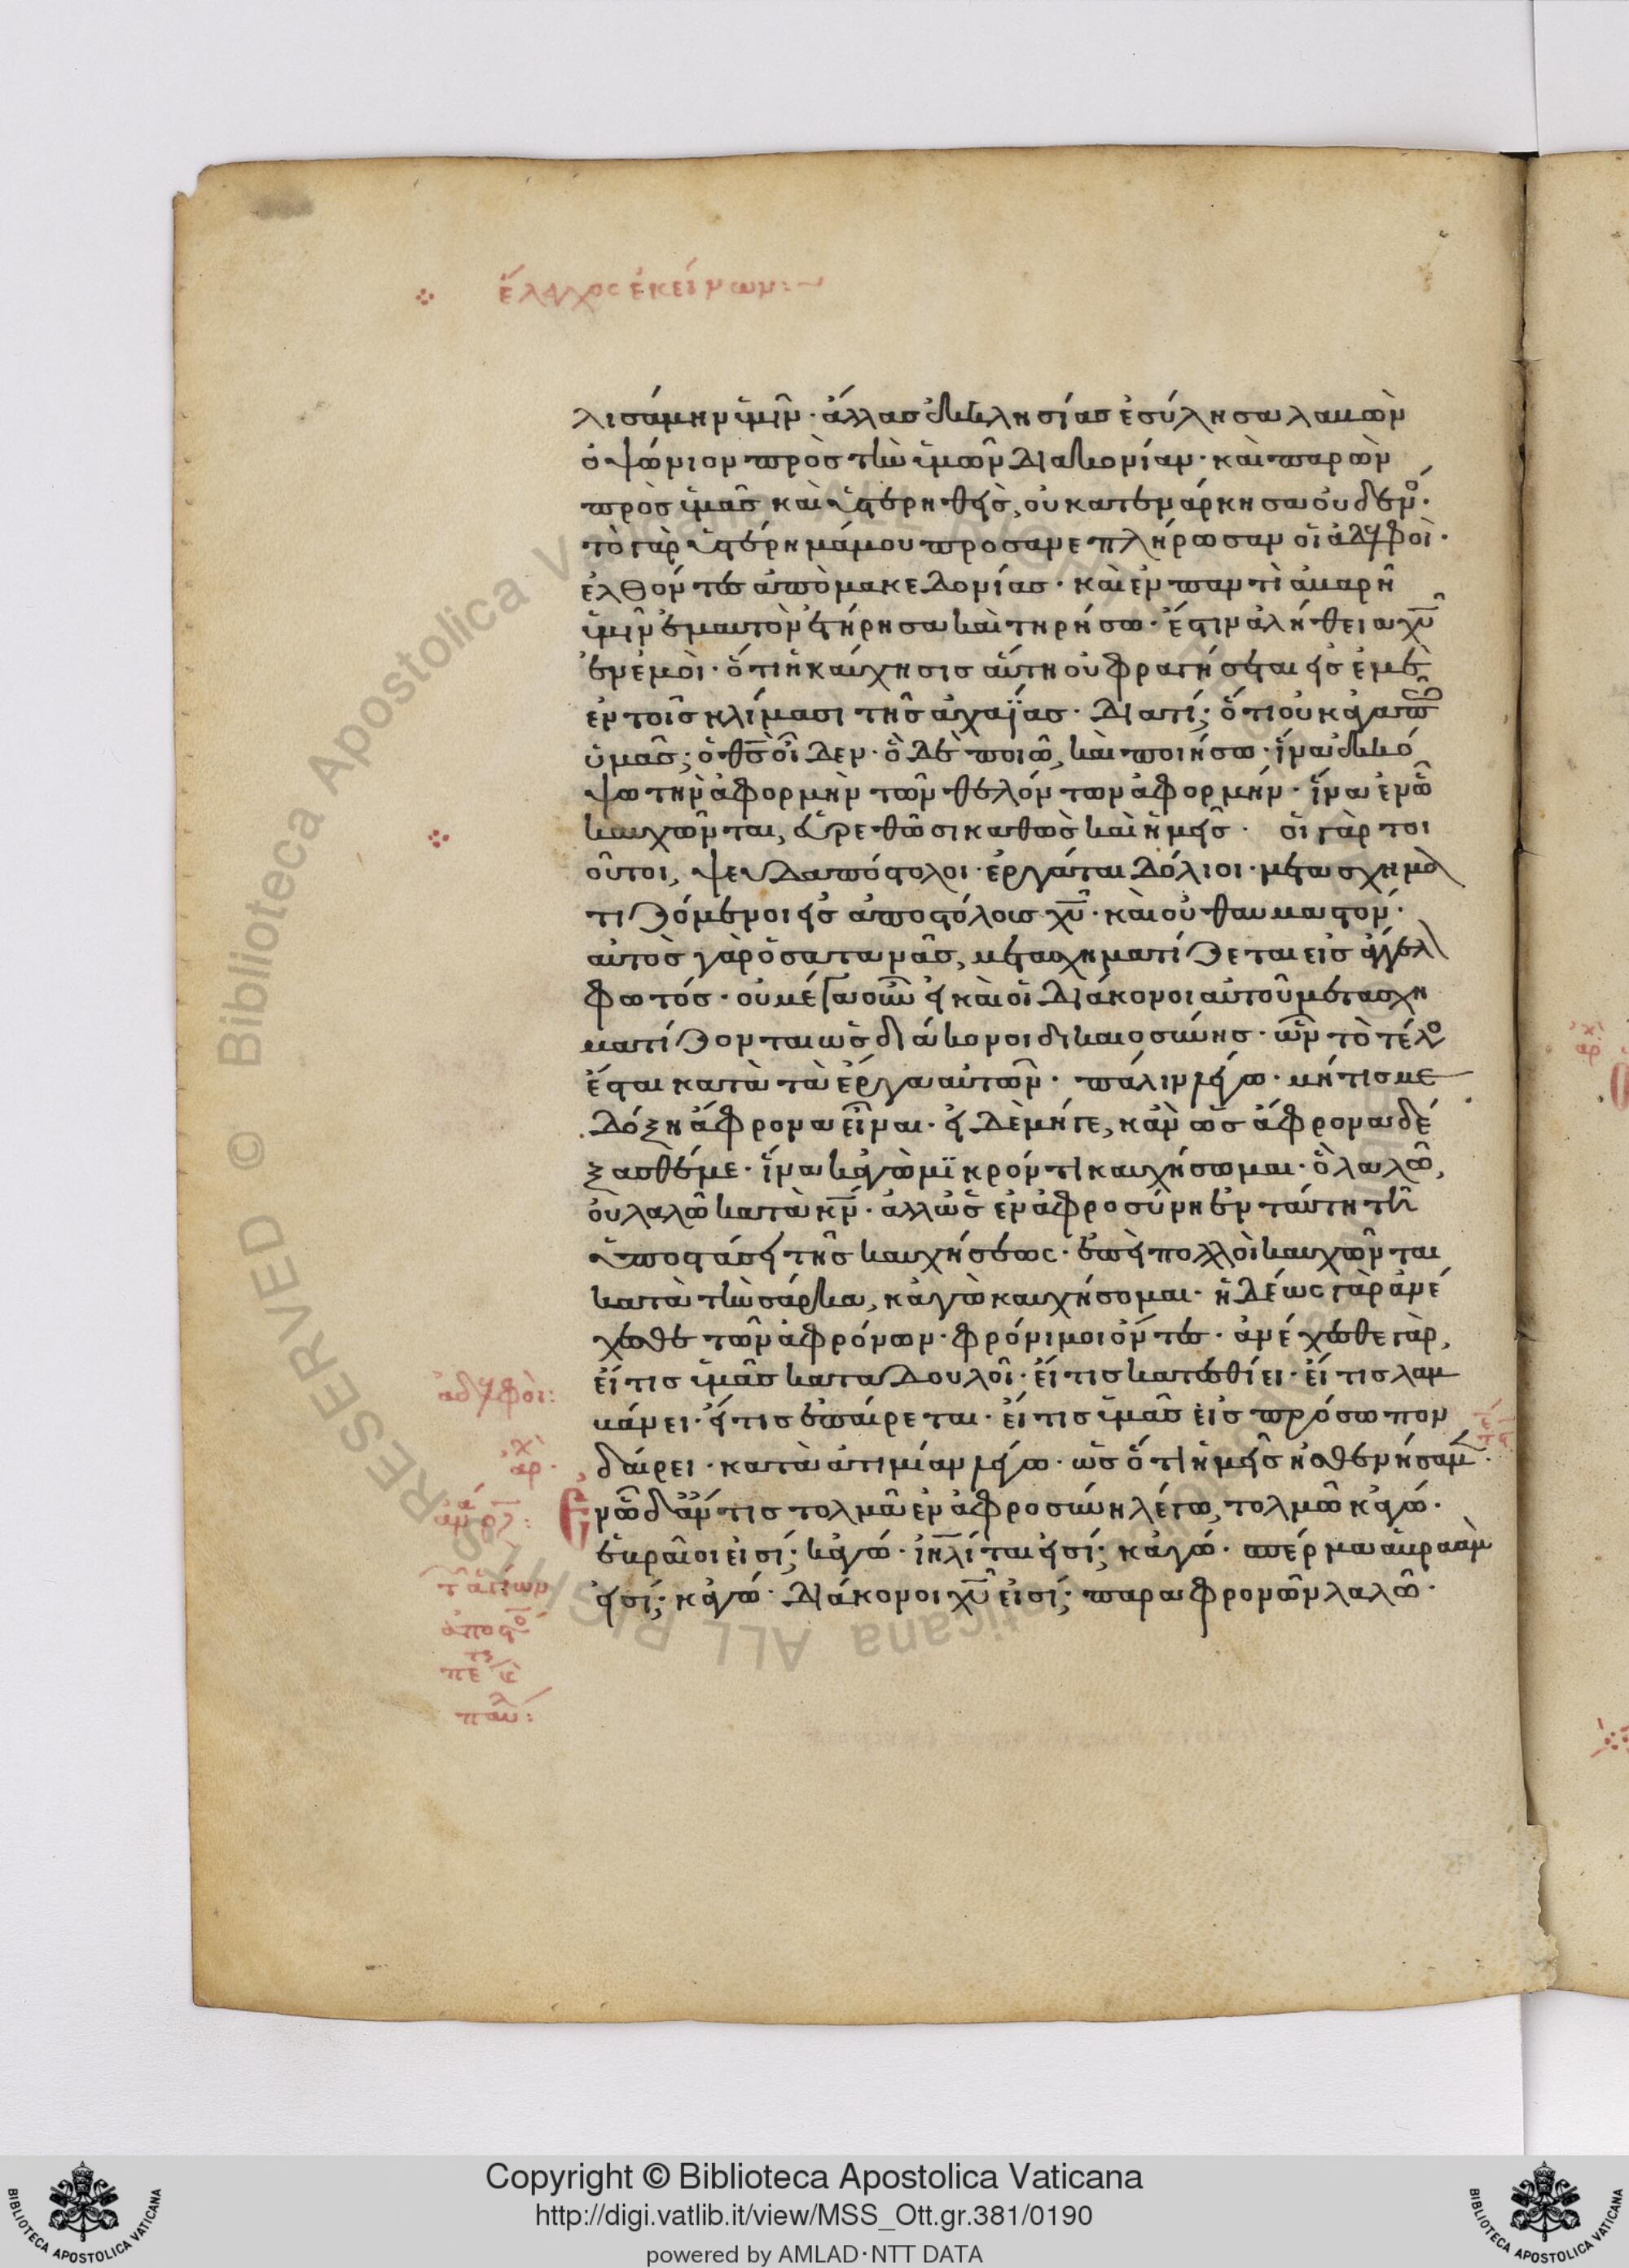 ἔλεγχος ἐκείνων:~
λισάμην ὑμῖν· ἄλλας ἐκκλησίας ἐσύλησα λαβὼν
ὀψώνιον πρὸς τὴν ὑμῶν διακονίαν· καὶ παρὼν
πρὸς ὑμᾶς καὶ ὑστερηθεὶς, οὐ κατενάρκησα οὐδενό·
τὸ γὰρ ὑστέρημά μου προσανεπλήρωσαν οἱ ἀδελφοὶ·
ἐλθόντες ἀπὸ μακεδονίας· καὶ ἐν παντὶ ἀβαρῆ
ὑμῖν ἐμαυτὸν ἐτήρησα καὶ τηρήσω· ἔστιν ἀλήθεια χυ
ἐν ἐμοὶ· ὅτι ἡ καύχησις αὕτη οὐ φραγήσεται εἰς ἐμὲ
ἐν τοῖς κλίμασι τῆς ἀχαΐας· διατί; ὅτι οὐκ ἀγαπῶ
ὑμᾶς; ὁ θς οἶδεν· ὃ δὲ ποιῶ, καὶ ποιήσω· ἵνα ἐκκό
ψω τὴν ἀφορμὴν τῶν θελόντων ἀφορμήν· ἵνα ἐν ᾧ
καυχῶνται, εὑρεθῶσι καθὼς καὶ ἡμεῖς· οἱ γὰρ τοι
οῦτοι, ψευδαπόστολοι· ἐργάται δόλιοι· μετασχημα
τιζόμενοι εἰς ἀποστόλους χυ· καὶ οὐ θαυμαστόν·
αὐτὸς γὰρ ὁ σατανᾶς, μετασχηματίζεται εἰς ἄγγελ
φωτός· οὐ μέγα οὖν εἰ καὶ οἱ διάκονοι αὐτοῦ μετασχη
ματίζονται ὡς διάκονοι δικαιοσύνης· ὧν τὸ τέλο
ἔσται κατὰ τὰ ἔργα αὐτῶν· πάλιν λέγω· μή τις με
δόξῃ ἄφρονα εἶναι· εἰ δὲ μήγε, κἂν ὡς ἄφρονα δέ
ξασθέ με· ἵνα κἀγὼ μϊκρόν τι καυχήσωμαι· ὃ λαλῶ,
οὐ λαλῶ κατὰ κν· ἀλλ ὡς ἐν ἀφροσύνη ἐν ταύτη τῆ
ὑποστάσει τῆς καυχήσεως· ἐπεὶ πολλοὶ καυχῶνται
κατὰ τὴν σάρκα, κἀγὼ καυχήσομαι· ἡδέως γὰρ ἀνέ
χεσθε τῶν ἀφρόνων· φρόνιμοι ὄντες· ἀνέχεσθε γὰρ,
εἴ τις ὑμᾶς καταδουλοῖ· εἴ τις κατεσθίει· εἴ τις λαμ
βάνει· εἴ τις ἐπαίρεται· εἴ τις ὑμᾶς εἰς πρόσωπον
δαίρει· κατὰ ἀτιμίαν λέγω· ὡς ὅτι ἡμεῖς ἠσθενήσαμ·
Ἐν ᾧ δ ἄν τις τολμᾶ ἐν ἀφροσύνη λέγω, τολμῶ κἀγώ·
ἑβραῖοι εἰσί; κἀγώ· ἰηλίται εἰσί; κἀγώ· σπέρμα ἀβραὰμ
εἰσί; κἀγώ· διάκονοι χυ εἰσί; παραφρονῶν λαλῶ·
ἀδελφοὶ:
ἀρχ
τῶν ἁγίων
ἀποστο
πε
παυλ: